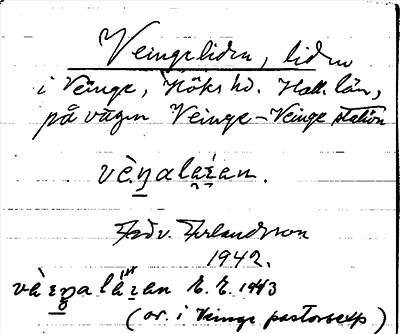 Veingeliden, liden
i Veinge, Höks hd. Hall. län,
på vägen Veinge – Veinge station
Edv. Erlandsson
1942.
E. E. 1943
(or. i Veinge pastorsexp)